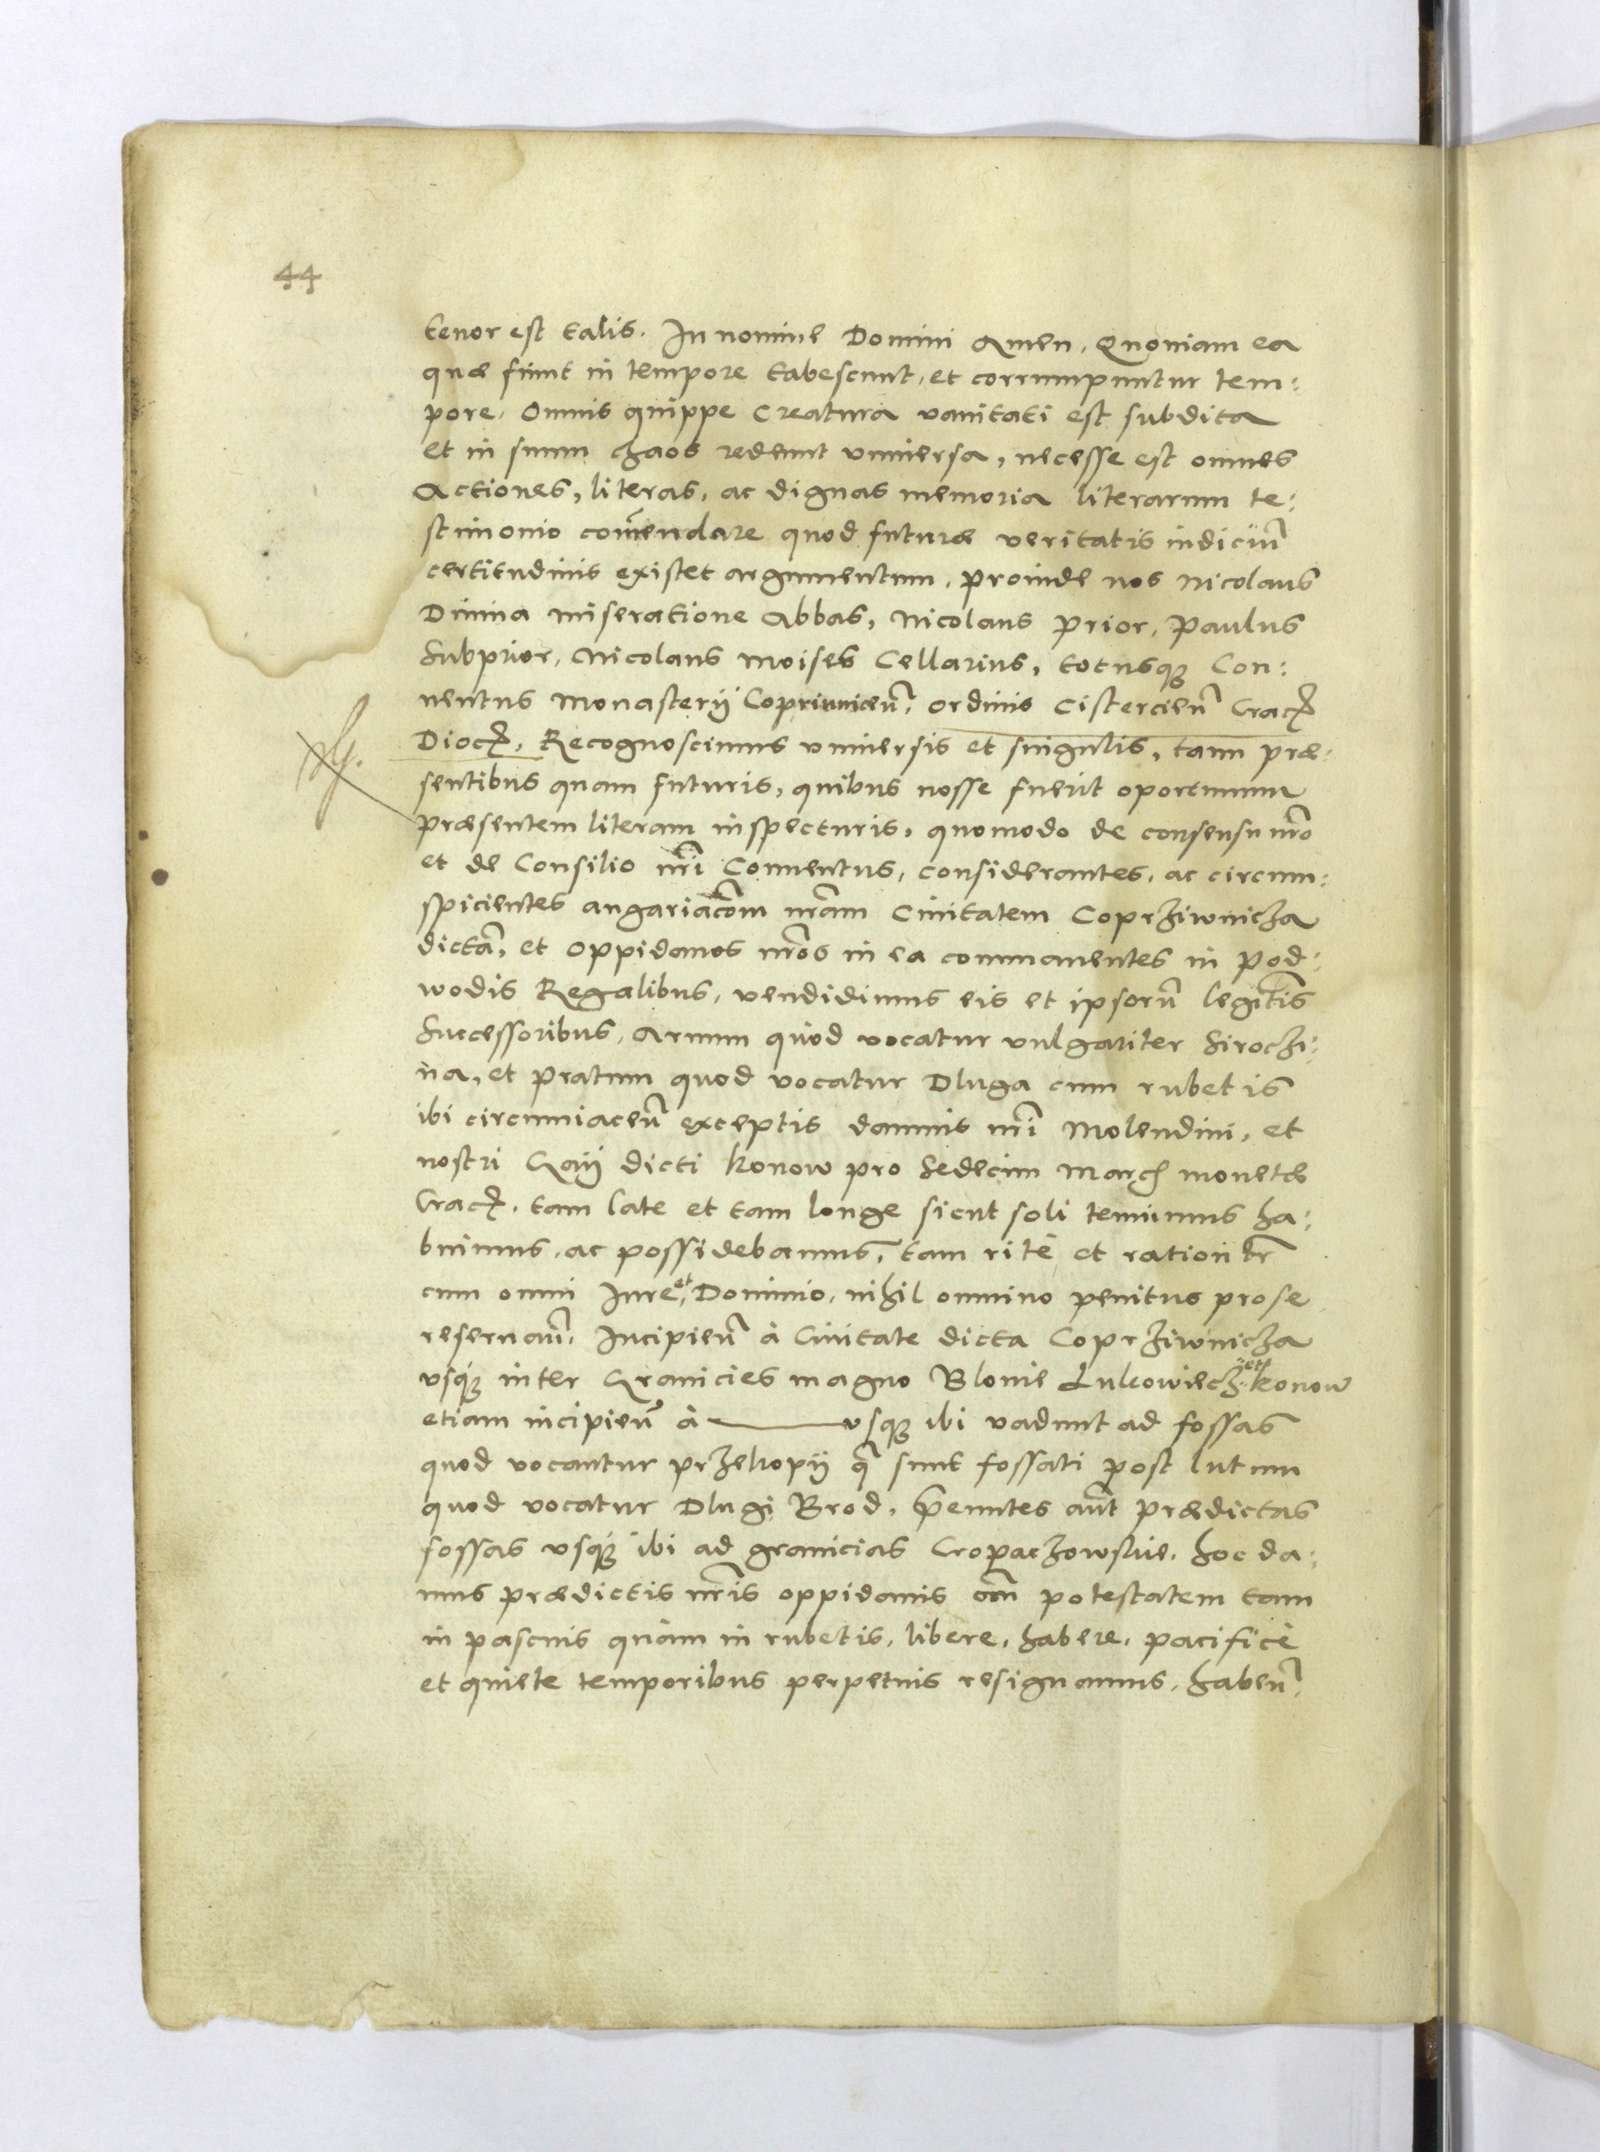 44
tenor est talis. In nomine Domini Amen. Quoniam ea
quæ fiunt in tempore tabescunt, et corrumpuntur tem:
pore. Omnis quippe Creatura vanitati est subdita
et in suum chaos redeunt vniuersa, necesse est omnes
Actiones, literas, ac dignas memoria literarum te:
stimonio com̄endare quod futuræ veritatis indiciū
certitudinis existet argumentum, proinde nos Nicolaus
Diuina miseratione Abbas, Nicolaus Prior, Paulus
Subprior, Nicolaus Moises Cellarius, totusq; Con:
uentus Monasterij Copriuniceñ. Ordinis Cistercieñ Crac̄
Dioc̄. Recognoscimus vniuersis et singulis, tam præ:
sentibus quam futuris, quibus nosse fuerit oportunum
præsentem literam inspecturis, quomodo de consensu nr̄o
et de Consilio nr̄i Conuentus, considerantes, ac circum:
spicientes angariac̄om nr̄am Ciuitatem Coprziwnicza
dictā, et Oppidanos nr̄os in ea commanentes in Pod:
wodis Regalibus, vendidimus eis et ipsorū legitīs
Successoribus, Aruum quod vocatur vulgariter Siroczi:
na, et Pratum quod vocatur Dluga cum rubetis
ibi circumiaceñ exceptis damnis nr̄i Molendini, et
nostri Gaij dicti Konow pro Sedecim March monetæ
Crac̄. tam late et tam longe sicut soli tenuimus ha:
buimus, ac possidebamus, tam ritè et rationtr̄
cum omni Iure et Dominio, nihil omnino penitus pro se
reseruañ. Incipieñ à Ciuitate dicta Coprziwnicza
vsq; inter Granicies magno Blonie Lukowiecz et Konow
etiam incipieñ à vsq; ibi vadunt ad fossas
quod vocantur Przekopij q̄ sunt fossati post lutum
quod vocatur Dlugi Brod, p̄euntes aūt prædictas
fossas vsq; ibi ad granicias Cropaczowskie. hoc da:
mus prædictis nr̄is oppidanis om̄ potestatem tam
in pascuis quàm in rubetis, libere, habere, pacificè
et quiete temporibus perpetuis resignamus, habeñ.